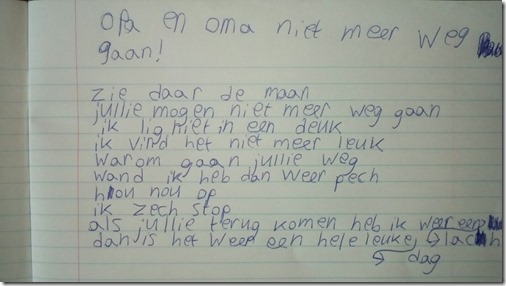 Opa en oma niet meer weg
gaan!
zie daar de maan
jullie mogen niet meer weg gaan
ik lig niet in een deuk
ik vind het niet meer leuk
warom gaan jullie weg
wand ik heb dan weer pech
hou nou op
ik zech stop
als jullie terug komen heb ik weer een lach
dan is het weer een hele leuke
dag